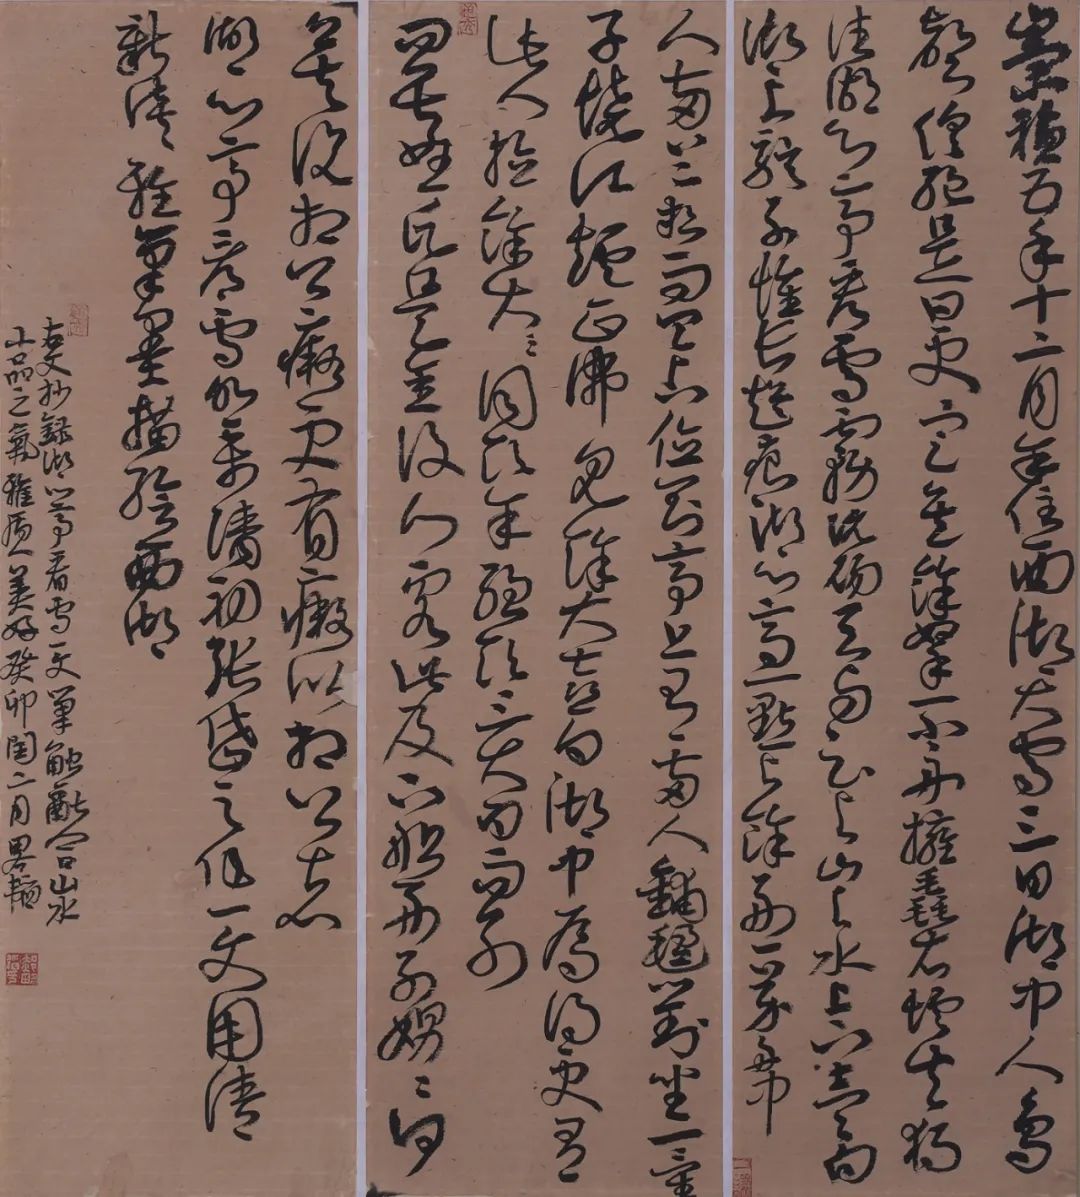 崇禎五年十二月余住西湖大雪三日湖中人鳥
聲俱絕是日更定矣余拏一小舟擁毳衣爐火獨
往湖心亭看雪霧淞沆碭天與雲與山與水上下一白
湖上影子惟長堤一痕湖心亭一點與余舟一芥舟中
人兩三粒而已到亭上有兩人鋪氈對坐一童
子燒酒爐正沸見余大喜曰湖中焉得更有
此人拉余大同飲余強飲三大白而別
問其姓氏是金陵人客此及下船舟子喃喃曰
莫說相公癡更有癡似相公者
湖心亭看雪明末清初張岱之作一文用清
新淡雅筆墨描繪西湖
古文抄錄湖心亭看雪一文筆触融合山水
小品之氣雅質美好癸卯閏二月